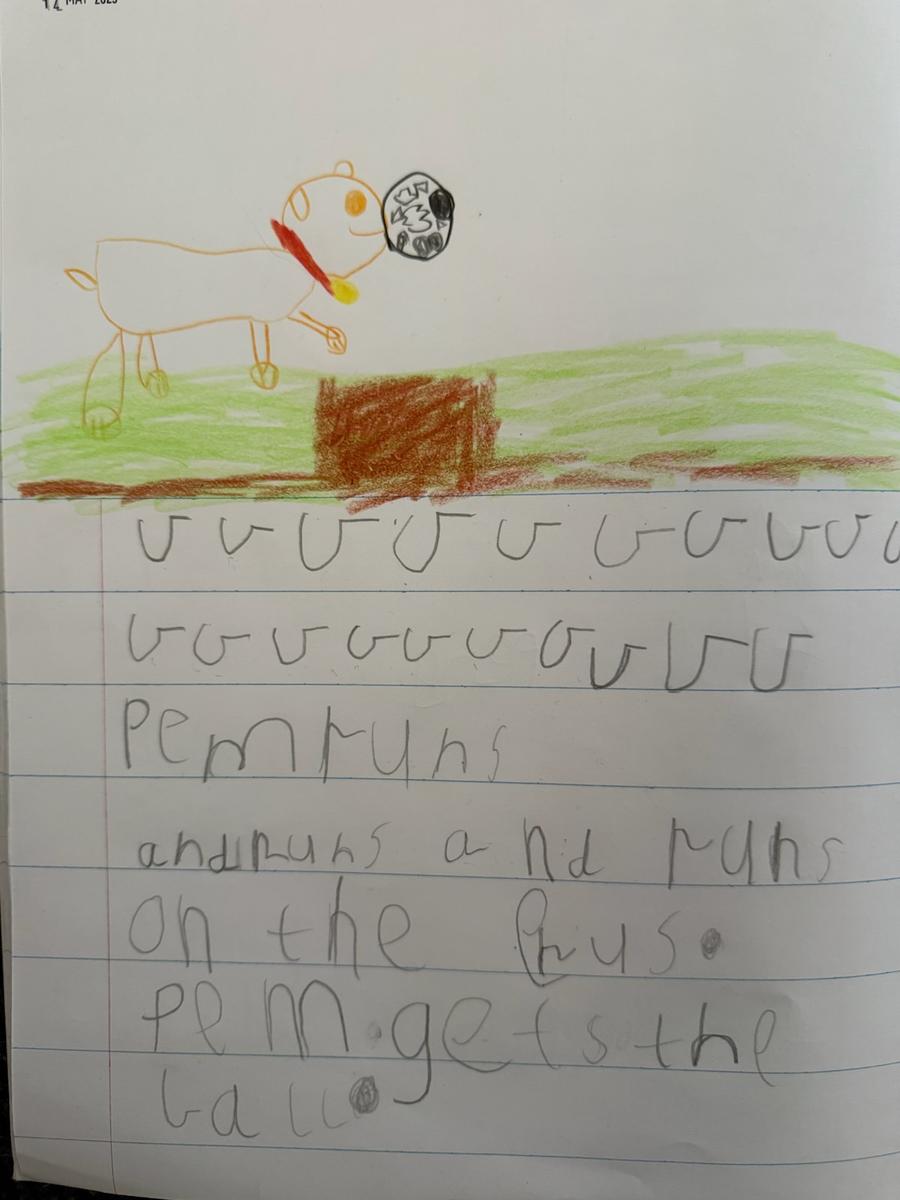 14 MAY 2025
v v v v v v v v v
v v v v v v v v v v
Pem runs
and runs and runs
on the grus.
pem gets the
ball.